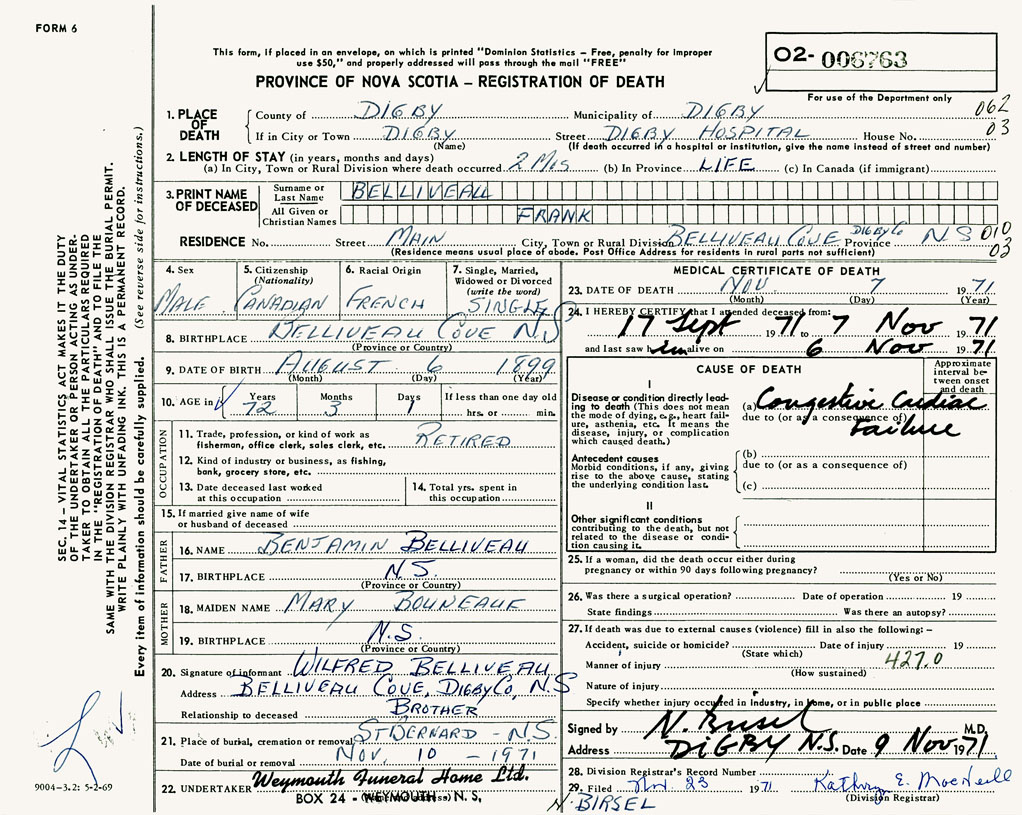 FORM 6
This form, if placed in an envelope, on which is printed "Dominion Statistics – Free, penalty for improper
use $50," and properly addressed will pass through the mail "FREE"
O2- 006763
For use of the Department only
PROVINCE OF NOVA SCOTIA – REGISTRATION OF DEATH
1. PLACE OF DEATH
County of DIGBY Municipality of DIGBY 062
If in City or Town DIGBY Street DIGBY HOSPITAL House No. 03
(Name) (If death occurred in a hospital or institution, give the name instead of street and number)
2. LENGTH OF STAY (in years, months and days)
(a) In City, Town or Rural Division where death occurred 2 MOS (b) In Province LIFE (c) In Canada (if immigrant)
3. PRINT NAME OF DECEASED
Surname or Last Name BELLIVEAU
All Given or Christian Names FRANK
RESIDENCE No. Street MAIN City, Town or Rural Division BELLIVEAU COVE DIGBY CO Province N S 010
(Residence means usual place of abode. Post Office Address for residents in rural parts not sufficient) 03
4. Sex MALE
5. Citizenship (Nationality) CANADIAN
6. Racial Origin FRENCH
7. Single, Married, Widowed or Divorced (write the word) SINGLE
8. BIRTHPLACE BELLIVEAU COVE N.S
(Province or Country)
9. DATE OF BIRTH AUGUST 6 1899
(Month) (Day) (Year)
10. AGE in Years 72 Months 3 Days 1 If less than one day old hrs. or min.
OCCUPATION
11. Trade, profession, or kind of work as fisherman, office clerk, sales clerk, etc. RETIRED
12. Kind of industry or business, as fishing, bank, grocery store, etc.
13. Date deceased last worked at this occupation
14. Total yrs. spent in this occupation
15. If married give name of wife or husband of deceased
FATHER
16. NAME BENJAMIN BELLIVEAU
17. BIRTHPLACE N.S.
(Province or Country)
MOTHER
18. MAIDEN NAME MARY
19. BIRTHPLACE N.S.
(Province or Country)
20. Signature of informant WILFRED BELLIVEAU
Address BELLIVEAU COVE, DIGBY CO, N.S
Relationship to deceased BROTHER
21. Place of burial, cremation or removal ST BERNARD - N.S.
Date of burial or removal NOV. 10 - 1971
22. UNDERTAKER Weymouth Funeral Home Ltd.
BOX 24 - WEYMOUTH, N. S,
MEDICAL CERTIFICATE OF DEATH
23. DATE OF DEATH NOV 7 1971
(Month) (Day) (Year)
24. I HEREBY CERTIFY that I attended deceased from:
17 Sept 1971 to 7 Nov 1971
and last saw him alive on 6 Nov 1971
CAUSE OF DEATH
Approximate interval between onset and death
I
Disease or condition directly leading to death (This does not mean the mode of dying, e.g., heart failure, asthenia, etc. It means the disease, injury, or complication which caused death.)
(a) Congestive Cardiac
due to (or as a consequence of)
Failure
Antecedent causes
Morbid conditions, if any, giving rise to the above cause, stating the underlying condition last.
(b)
due to (or as a consequence of)
(c)
II
Other significant conditions
contributing to the death, but not related to the disease or condition causing it.
25. If a woman, did the death occur either during
pregnancy or within 90 days following pregnancy?
(Yes or No)
26. Was there a surgical operation? Date of operation 19
State findings Was there an autopsy?
27. If death was due to external causes (violence) fill in also the following: –
Accident, suicide or homicide? Date of injury 19
(State which) 427.0
Manner of injury
(How sustained)
Nature of injury
Specify whether injury occurred in Industry, in Home, or in public place
Signed by N. Birsel M.D.
Address DIGBY N.S. Date 9 Nov 1971
28. Division Registrar's Record Number
29. Filed Nov. 23 1971 Kathryn E. MacNeill
(Division Registrar)
N. BIRSEL
SEC. 14 – VITAL STATISTICS ACT MAKES IT THE DUTY
OF THE UNDERTAKER OR PERSON ACTING AS UNDER-
TAKER TO OBTAIN ALL THE PARTICULARS REQUIRED
IN THE "REGISTRATION OF DEATH" AND TO FILE THE
SAME WITH THE DIVISION REGISTRAR WHO SHALL ISSUE THE BURIAL PERMIT.
WRITE PLAINLY WITH UNFADING INK. THIS IS A PERMANENT RECORD.
Every item of information should be carefully supplied. (See reverse side for instructions.)
9004-3.2: 5-2-69